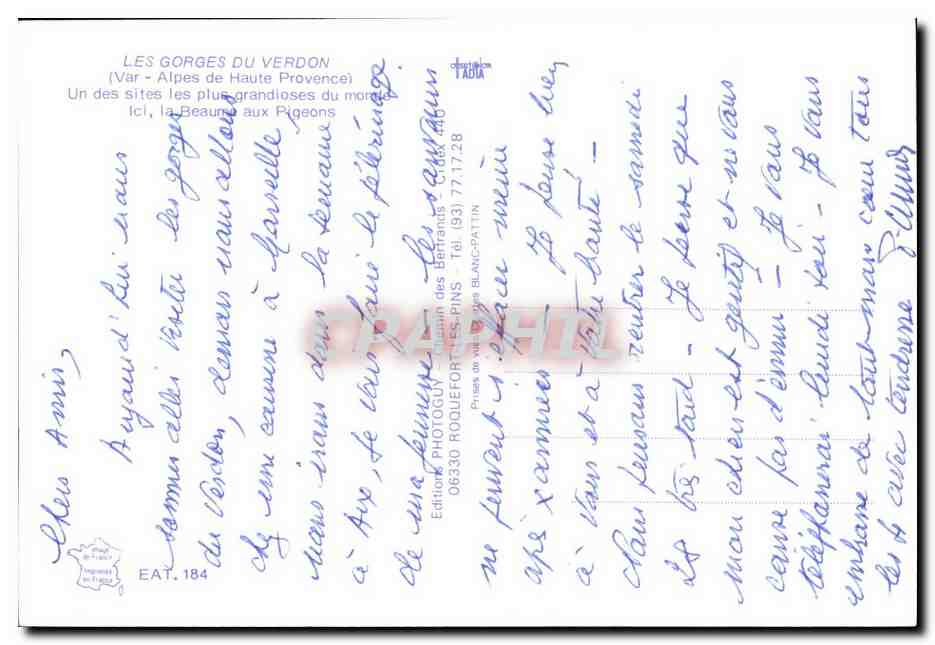 LES GORGES DU VERDON
(Var - Alpes de Haute Provence)
Un des sites les plus grandioses du monde
Ici, la Beaume aux Pigeons
ADIA
Editions PHOTOGUY - Chemin des Bertrands - Cidex 440
06330 ROQUEFORT-LES-PINS - Tél. (93) 77.17.28
Prises de vues des BLANC-PATTIN
Image
de France
Imprimée
en France
EAT. 184
CPAPHIL
Chers Amis,
Aujourd'hui nous
sommes allés visiter les gorges
du Verdon, demain nous allons
une cousine à Marseille,
nous irons dans la semaine
à Aix, je vais faire le pélérinage
de ma jeunesse. Les souvenirs
ne peuvent s'effacer même
après X années - Je pense bien
à vous et à votre santé -
Nous pensons rentrer le samedi
28 très tard - Je pense que
mon chien est gentil et ne vous
cause pas d'ennui - Je vous
téléphonerai lundi soir - Je vous
embrasse de tout mon cœur tous
les 4 avec tendresse